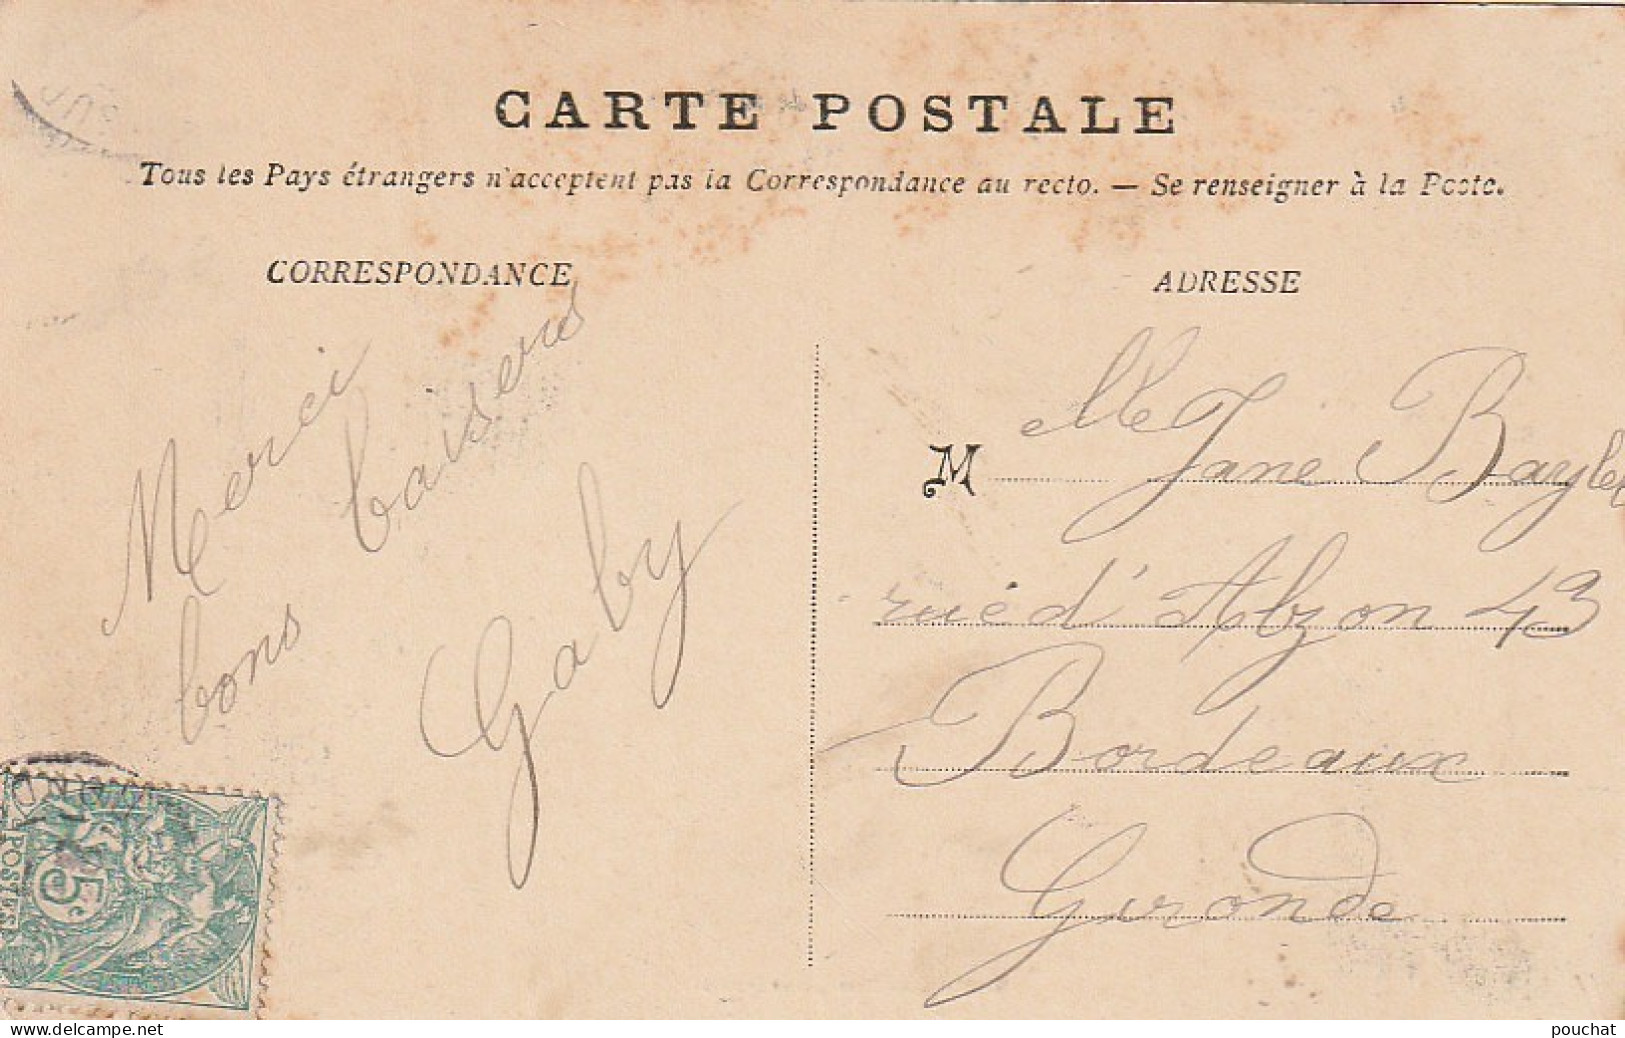 CARTE POSTALE
Tous les Pays étrangers n'acceptent pas la Correspondance au recto. — Se renseigner à la Poste.
CORRESPONDANCE
Merci
bons baisers
Gaby
ADRESSE
M elle Jane Bayle
rue d'Alzon 43
Bordeaux
Gironde
5c
POSTES
www.delcampe.net
pouchat